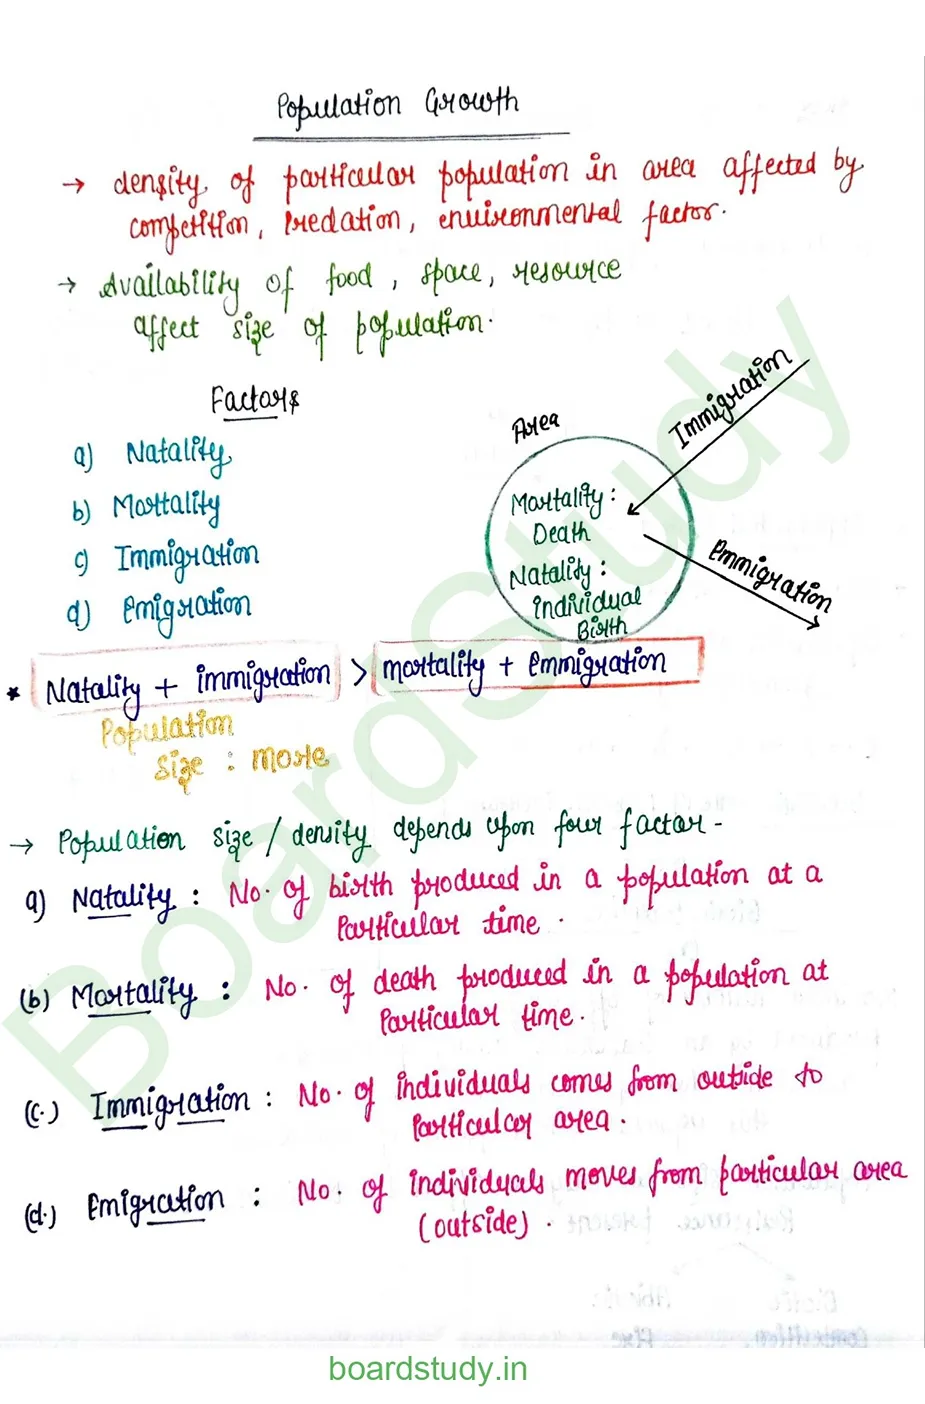 Population Growth
→ density of particular population in area affected by
competition, Predation, environmental factor.
→ Availability of food, space, resource
affect size of population.
Factors
a) Natality
b) Mortality
c) Immigration
d) Emigration
Area
Immigration
Mortality :
Death
Natality :
individual
Birth
Emmigration
* Natality + immigration > mortality + Emmigration
Population
size : more
→ Population size / density depends upon four factor -
a) Natality : No. of birth produced in a population at a
Particular time.
(b) Mortality : No. of death produced in a population at
Particular time.
(c.) Immigration : No. of individuals comes from outside to
particular area.
(d.) Emigration : No. of individuals moves from particular area
(outside).
BoardStudy
boardstudy.in